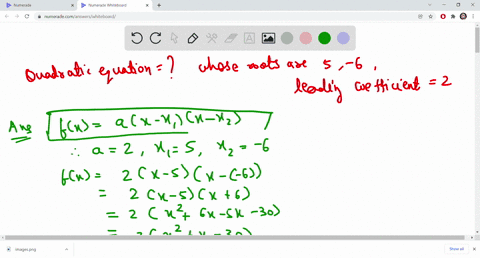 Numerade
Numerade Whiteboard
numerade.com/answers/whiteboard/
Quadratic equation = ? whose roots are 5, -6,
leading coefficient = 2
Ans f(x) = a(x-x₁)(x-x₂)
∴ a = 2, x₁ = 5, x₂ = -6
f(x) = 2(x-5)(x-(-6))
= 2(x-5)(x+6)
= 2(x²+6x-5x-30)
= 2(x²+x-30)
images.png
Show all